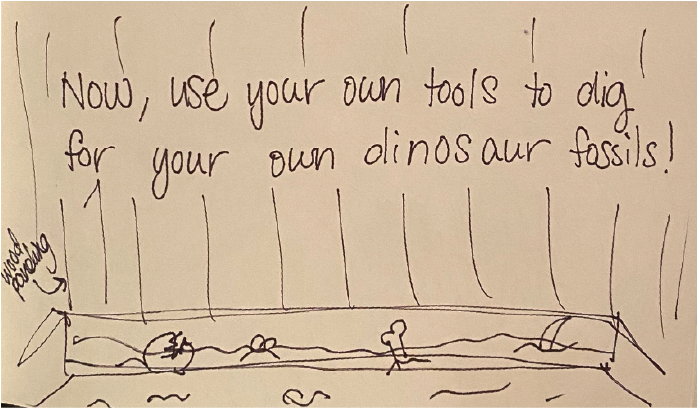 Now, use your own tools to dig
for your own dinosaur fossils!
wood
paneling